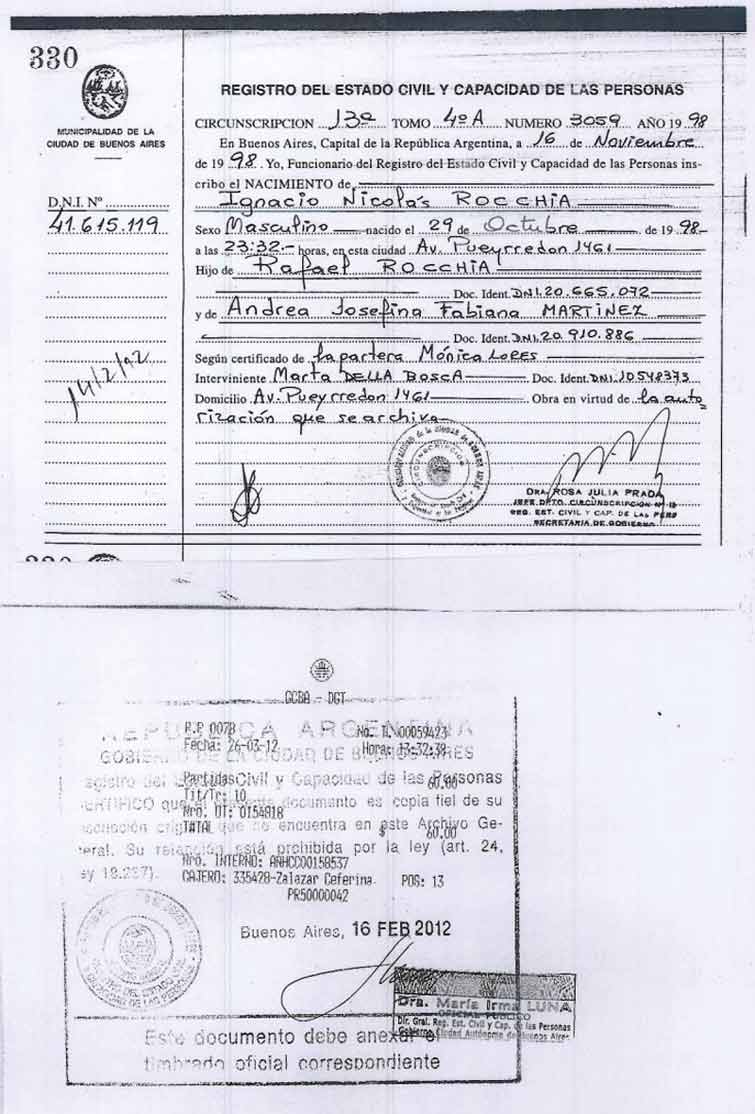 330
MUNICIPALIDAD DE LA
CIUDAD DE BUENOS AIRES
D.N.I. Nº
41.615.119
14/2/92
REGISTRO DEL ESTADO CIVIL Y CAPACIDAD DE LAS PERSONAS
CIRCUNSCRIPCION 13ª TOMO 4º A NUMERO 3059 AÑO 19 98
En Buenos Aires, Capital de la República Argentina, a 16 de Noviembre
de 19 98. Yo, Funcionario del Registro del Estado Civil y Capacidad de las Personas ins-
cribo el NACIMIENTO de
Ignacio Nicolás ROCCHIA
Sexo Masculino nacido el 29 de Octubre de 19 98
a las 23:32 horas, en esta ciudad Av. Pueyrredon 1461
Hijo de Rafael ROCCHIA
Doc. Ident. DNI. 20.665.072
y de Andrea Josefina Fabiana MARTINEZ
Doc. Ident. DNI. 20.910.886
Según certificado de la partera Mónica LORES
Interviniente Marta DELLA BOSCA Doc. Ident. DNI. 10548373
Domicilio Av. Pueyrredon 1461 Obra en virtud de la auto
rización que se archiva
CIRCUNSCRIPCION
DRA. ROSA JULIA PRADA
JEFE DPTO. CIRCUNSCRIPCION Nº 13
REG. EST. CIVIL Y CAP. DE LAS PERS
SECRETARIA DE GOBIERNO
330
GCBA - DGT
REPUBLICA ARGENTINA
P.P 0078 No. T. 00059423
Fecha: 26-03-12 Hora: 13:32:38
GOBIERNO DE LA CIUDAD DE BUENOS AIRES
Registro del Civil y Capacidad de las Personas
Partidas 60.00
Tit/Tr: 10
CERTIFICO que el presente documento es copia fiel de su
Nro. UT: 0154818
que se encuentra en este Archivo Ge-
TOTAL $ 60.00
neral. Su retención está prohibida por la ley (art. 24,
Nro. INTERNO: ANHCC00158537
ley 18.237).
CAJERO: 335428-Zalazar Ceferina POS: 13
PR50000042
Buenos Aires, 16 FEB 2012
Dra. María Irma LUNA
OFICIAL PUBLICO
Dir. Gral. Reg. Est. Civil y Cap. de las Personas
Gobierno Ciudad Autónoma de Buenos Aires
Este documento debe anexar el
timbrado oficial correspondiente